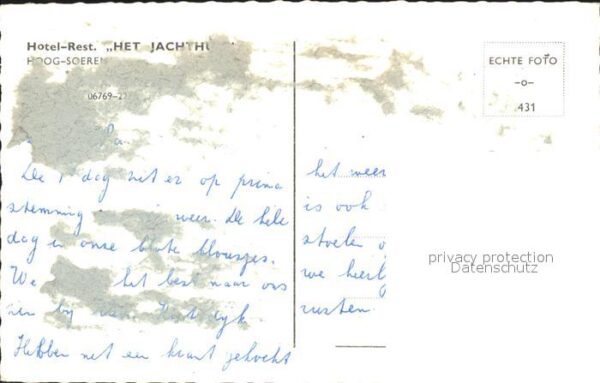 Hotel-Rest. „HET JACHTHU
HOOG-SOEREN
06769-2
ECHTE FOTO
-o-
431
Pa.
De 1e dag zit er op prima
stemming weer. De hele
dag in onze blote blousjes.
We het best naar ons
zin bij
Hebben net een krant gekocht
het weer
is ook
stoelen
we heerl
rusten
privacy protection
Datenschutz